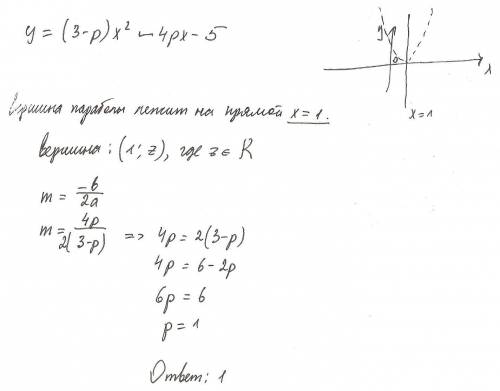 y = (3-p)x² - 4px - 5
y
0
x
x=1
Вершина параболы лежит на прямой x=1.
вершина: (1; z), где z ∈ R
m = -b/2a
m = 4p/2(3-p) => 4p = 2(3-p)
4p = 6 - 2p
6p = 6
p = 1
Ответ: 1